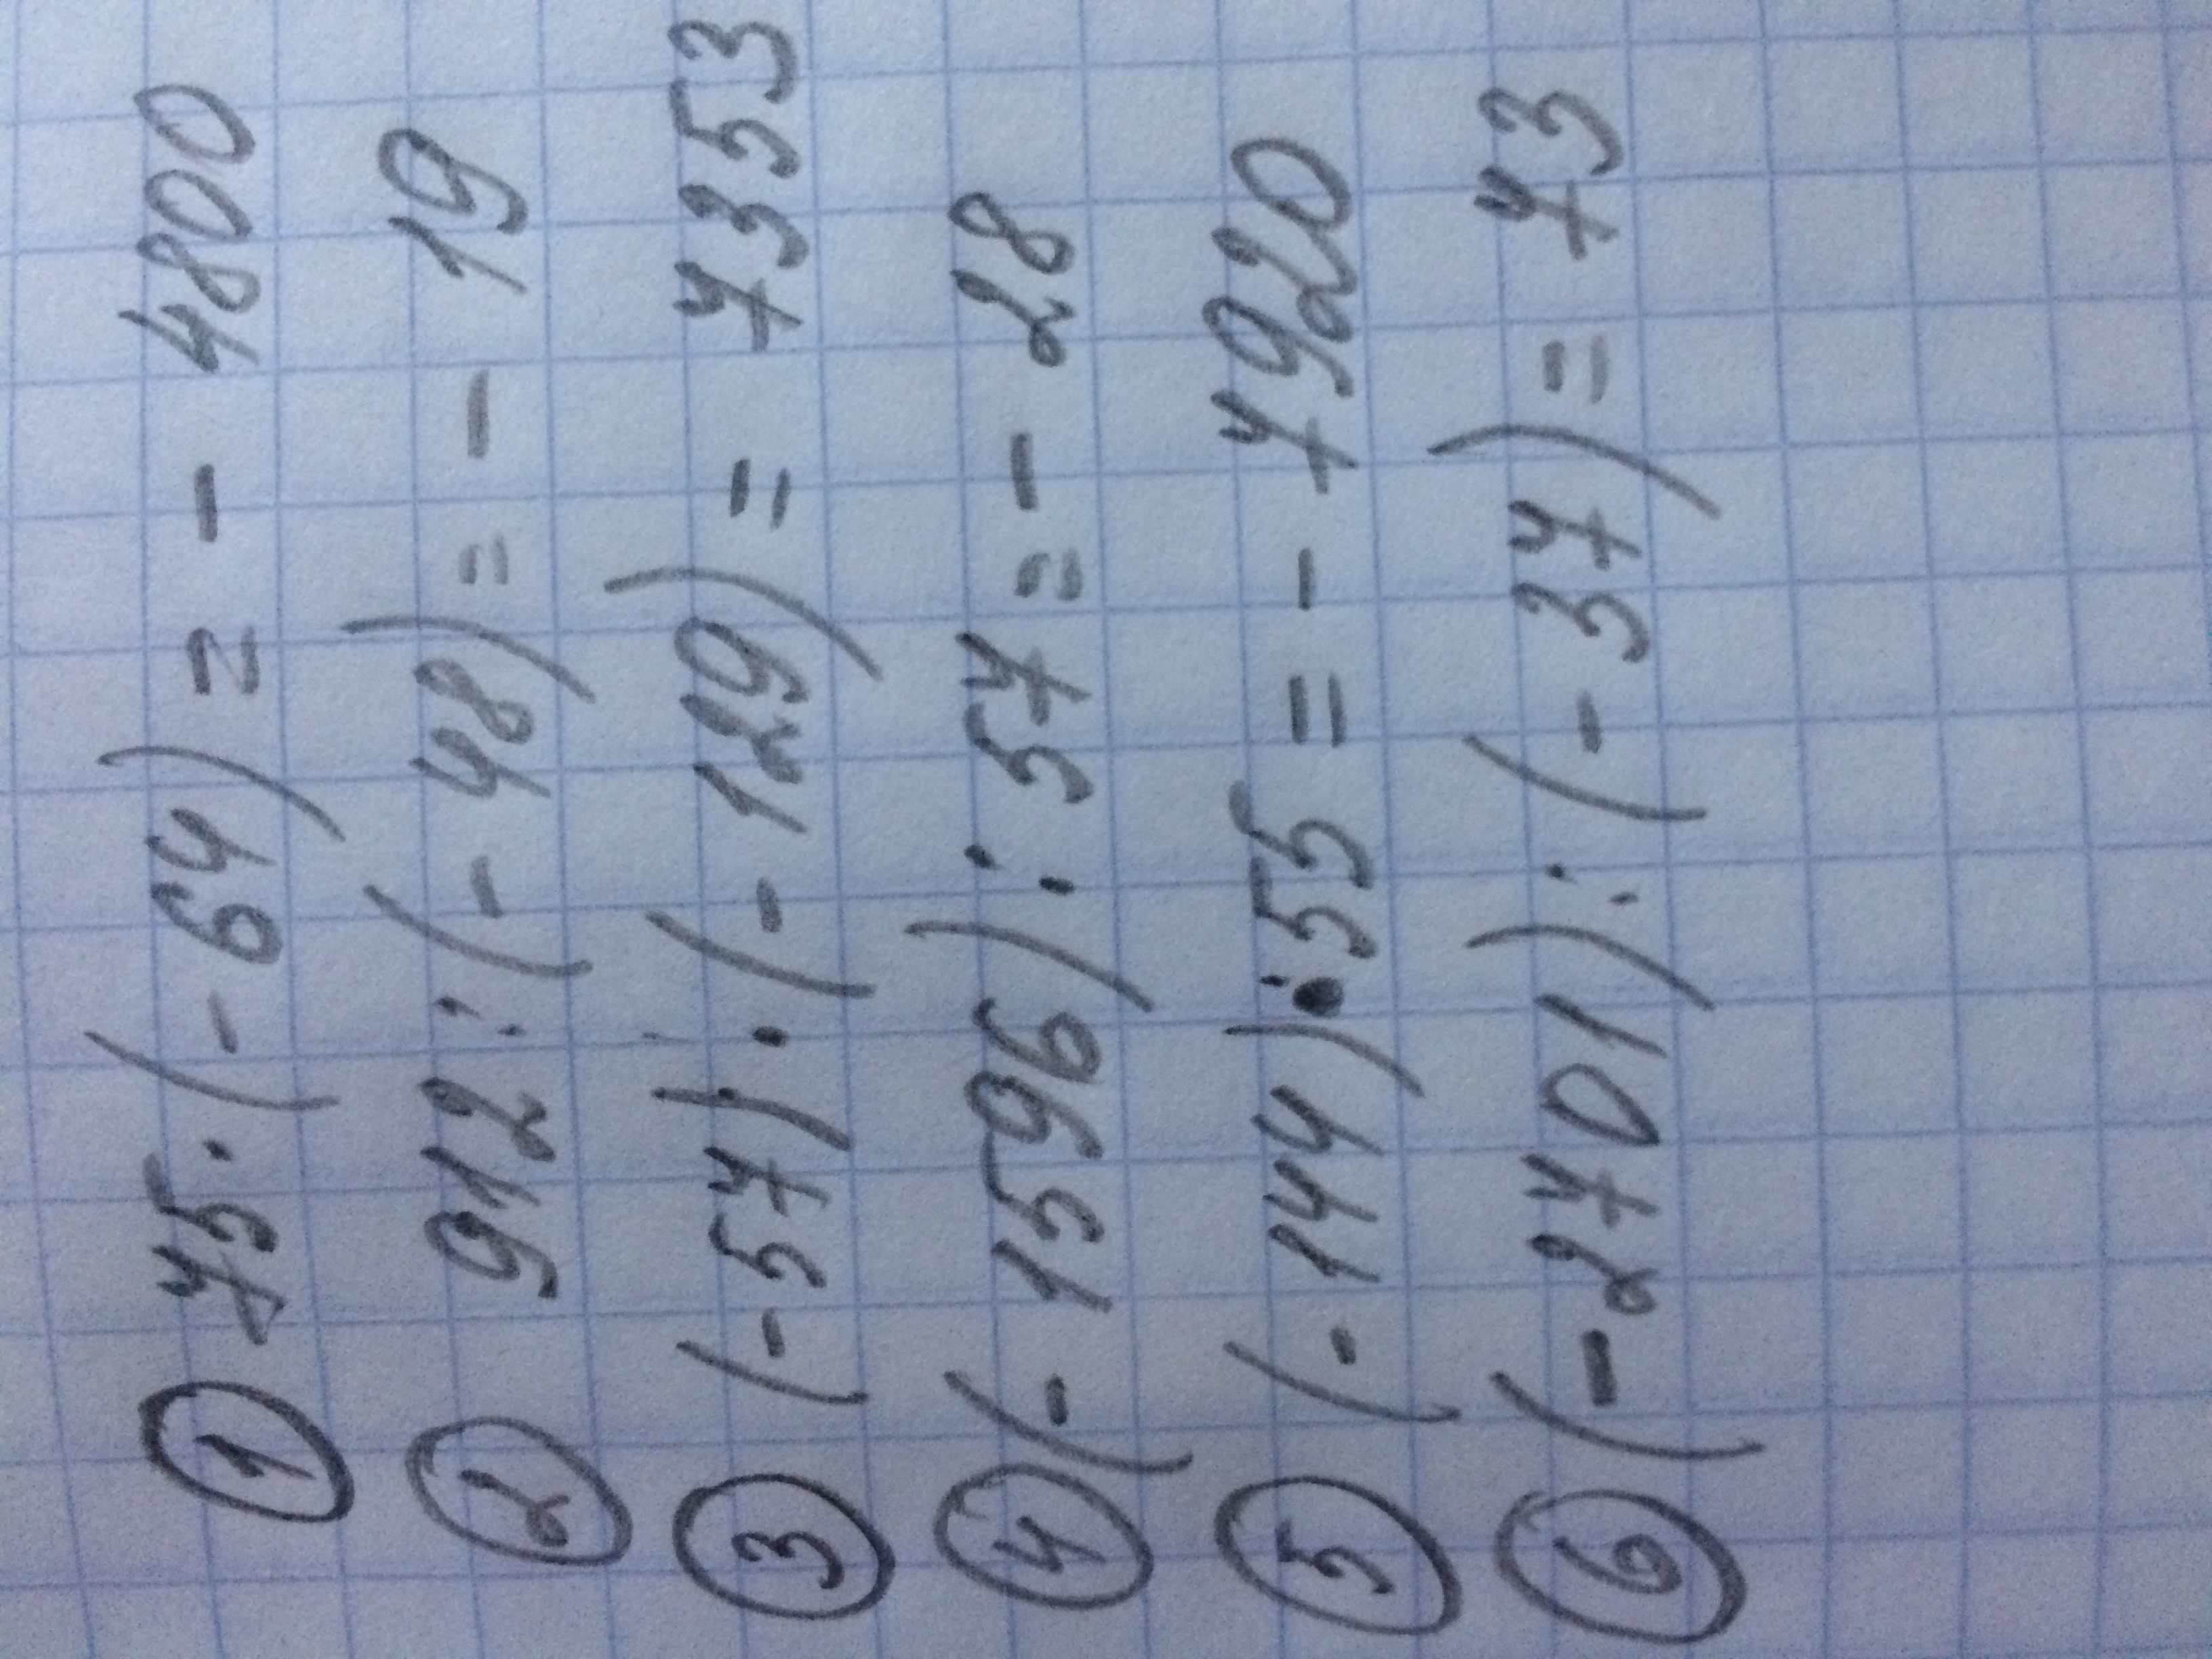 ① 75 · (- 64) = - 4800
② 912 : (- 48) = - 19
③ (- 57) · (- 129) = 7353
④ (- 1596) : 57 = - 28
⑤ (- 144) · 55 = - 7920
⑥ (- 2701) : (- 37) = 73